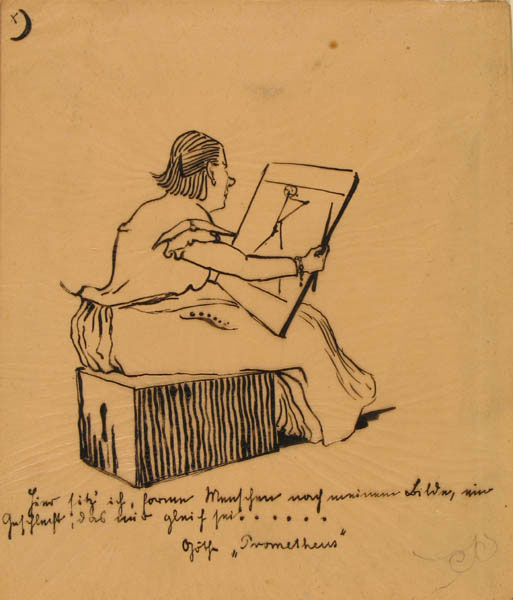 Hier sitz' ich, forme Menschen nach meinem Bilde, ein
Geschlecht, das mir gleich sei......
Göthe „Prometheus"